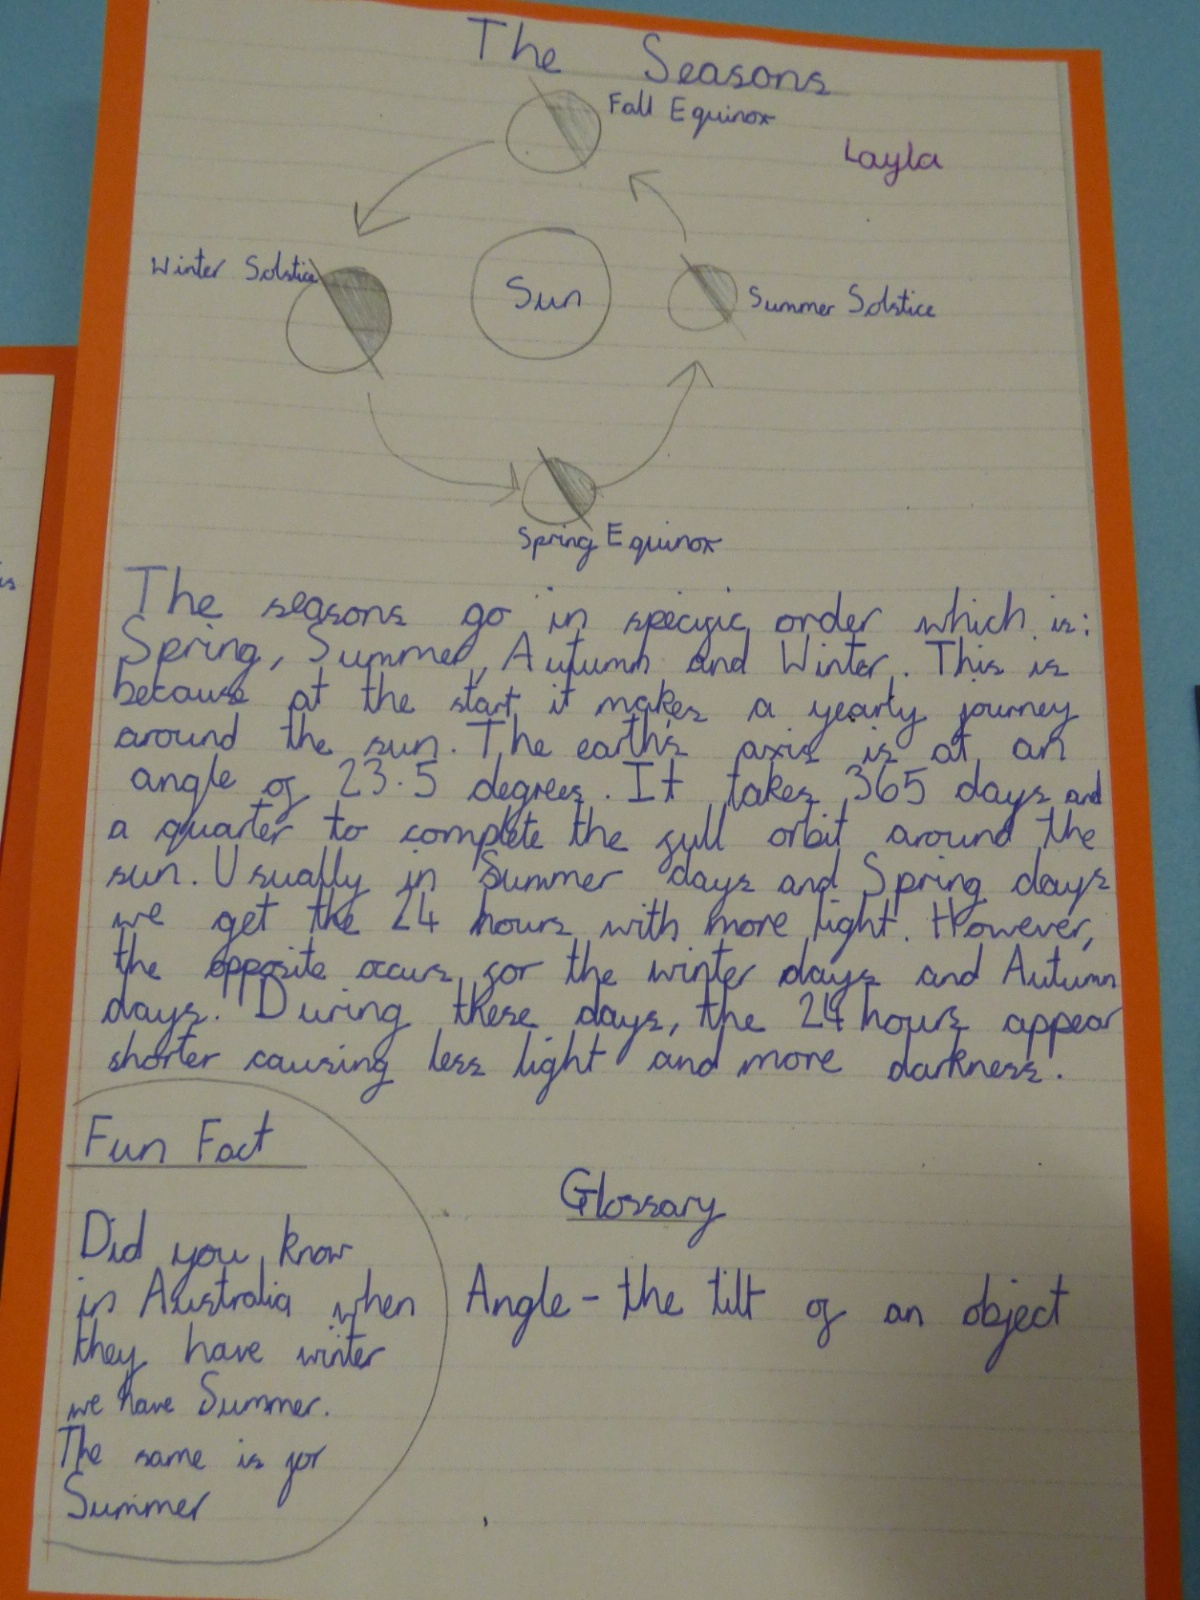 The Seasons
Fall Equinox
Layla
Winter Solstice
Sun
Summer Solstice
Spring Equinox
The seasons go in specific order which is:
Spring, Summer, Autumn and Winter. This is
because at the start it makes a yearly journey
around the sun. The earth's axis is at an
angle of 23.5 degrees. It takes 365 days and
a quarter to complete the full orbit around the
sun. Usually in Summer days and Spring days
we get the 24 hours with more light. However,
the opposite occurs for the winter days and Autumn
days. During these days, the 24 hours appear
shorter causing less light and more darkness.
Fun Fact
Did you know
in Australia when
they have winter
we have Summer.
The same is for
Summer
Glossary
Angle - the tilt of an object